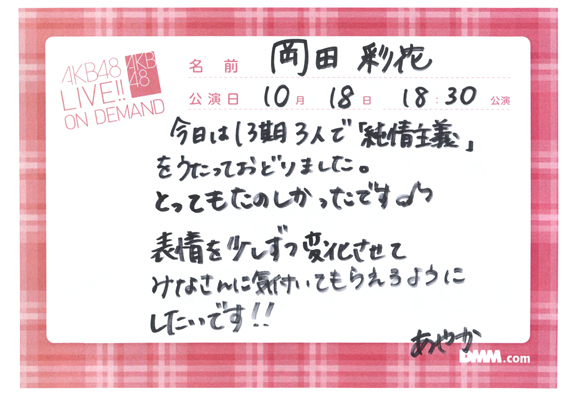 AKB48
LIVE!!
ON DEMAND
AKB
48
名前 岡田彩花
公演日 10月 18日 18:30 公演
今日は13期3人で「純情主義」
をうたっておどりました。
とってもたのしかったです♪
表情を少しずつ変化させて
みなさんに気付いてもらえるように
したいです!!
あやか
DMM.com